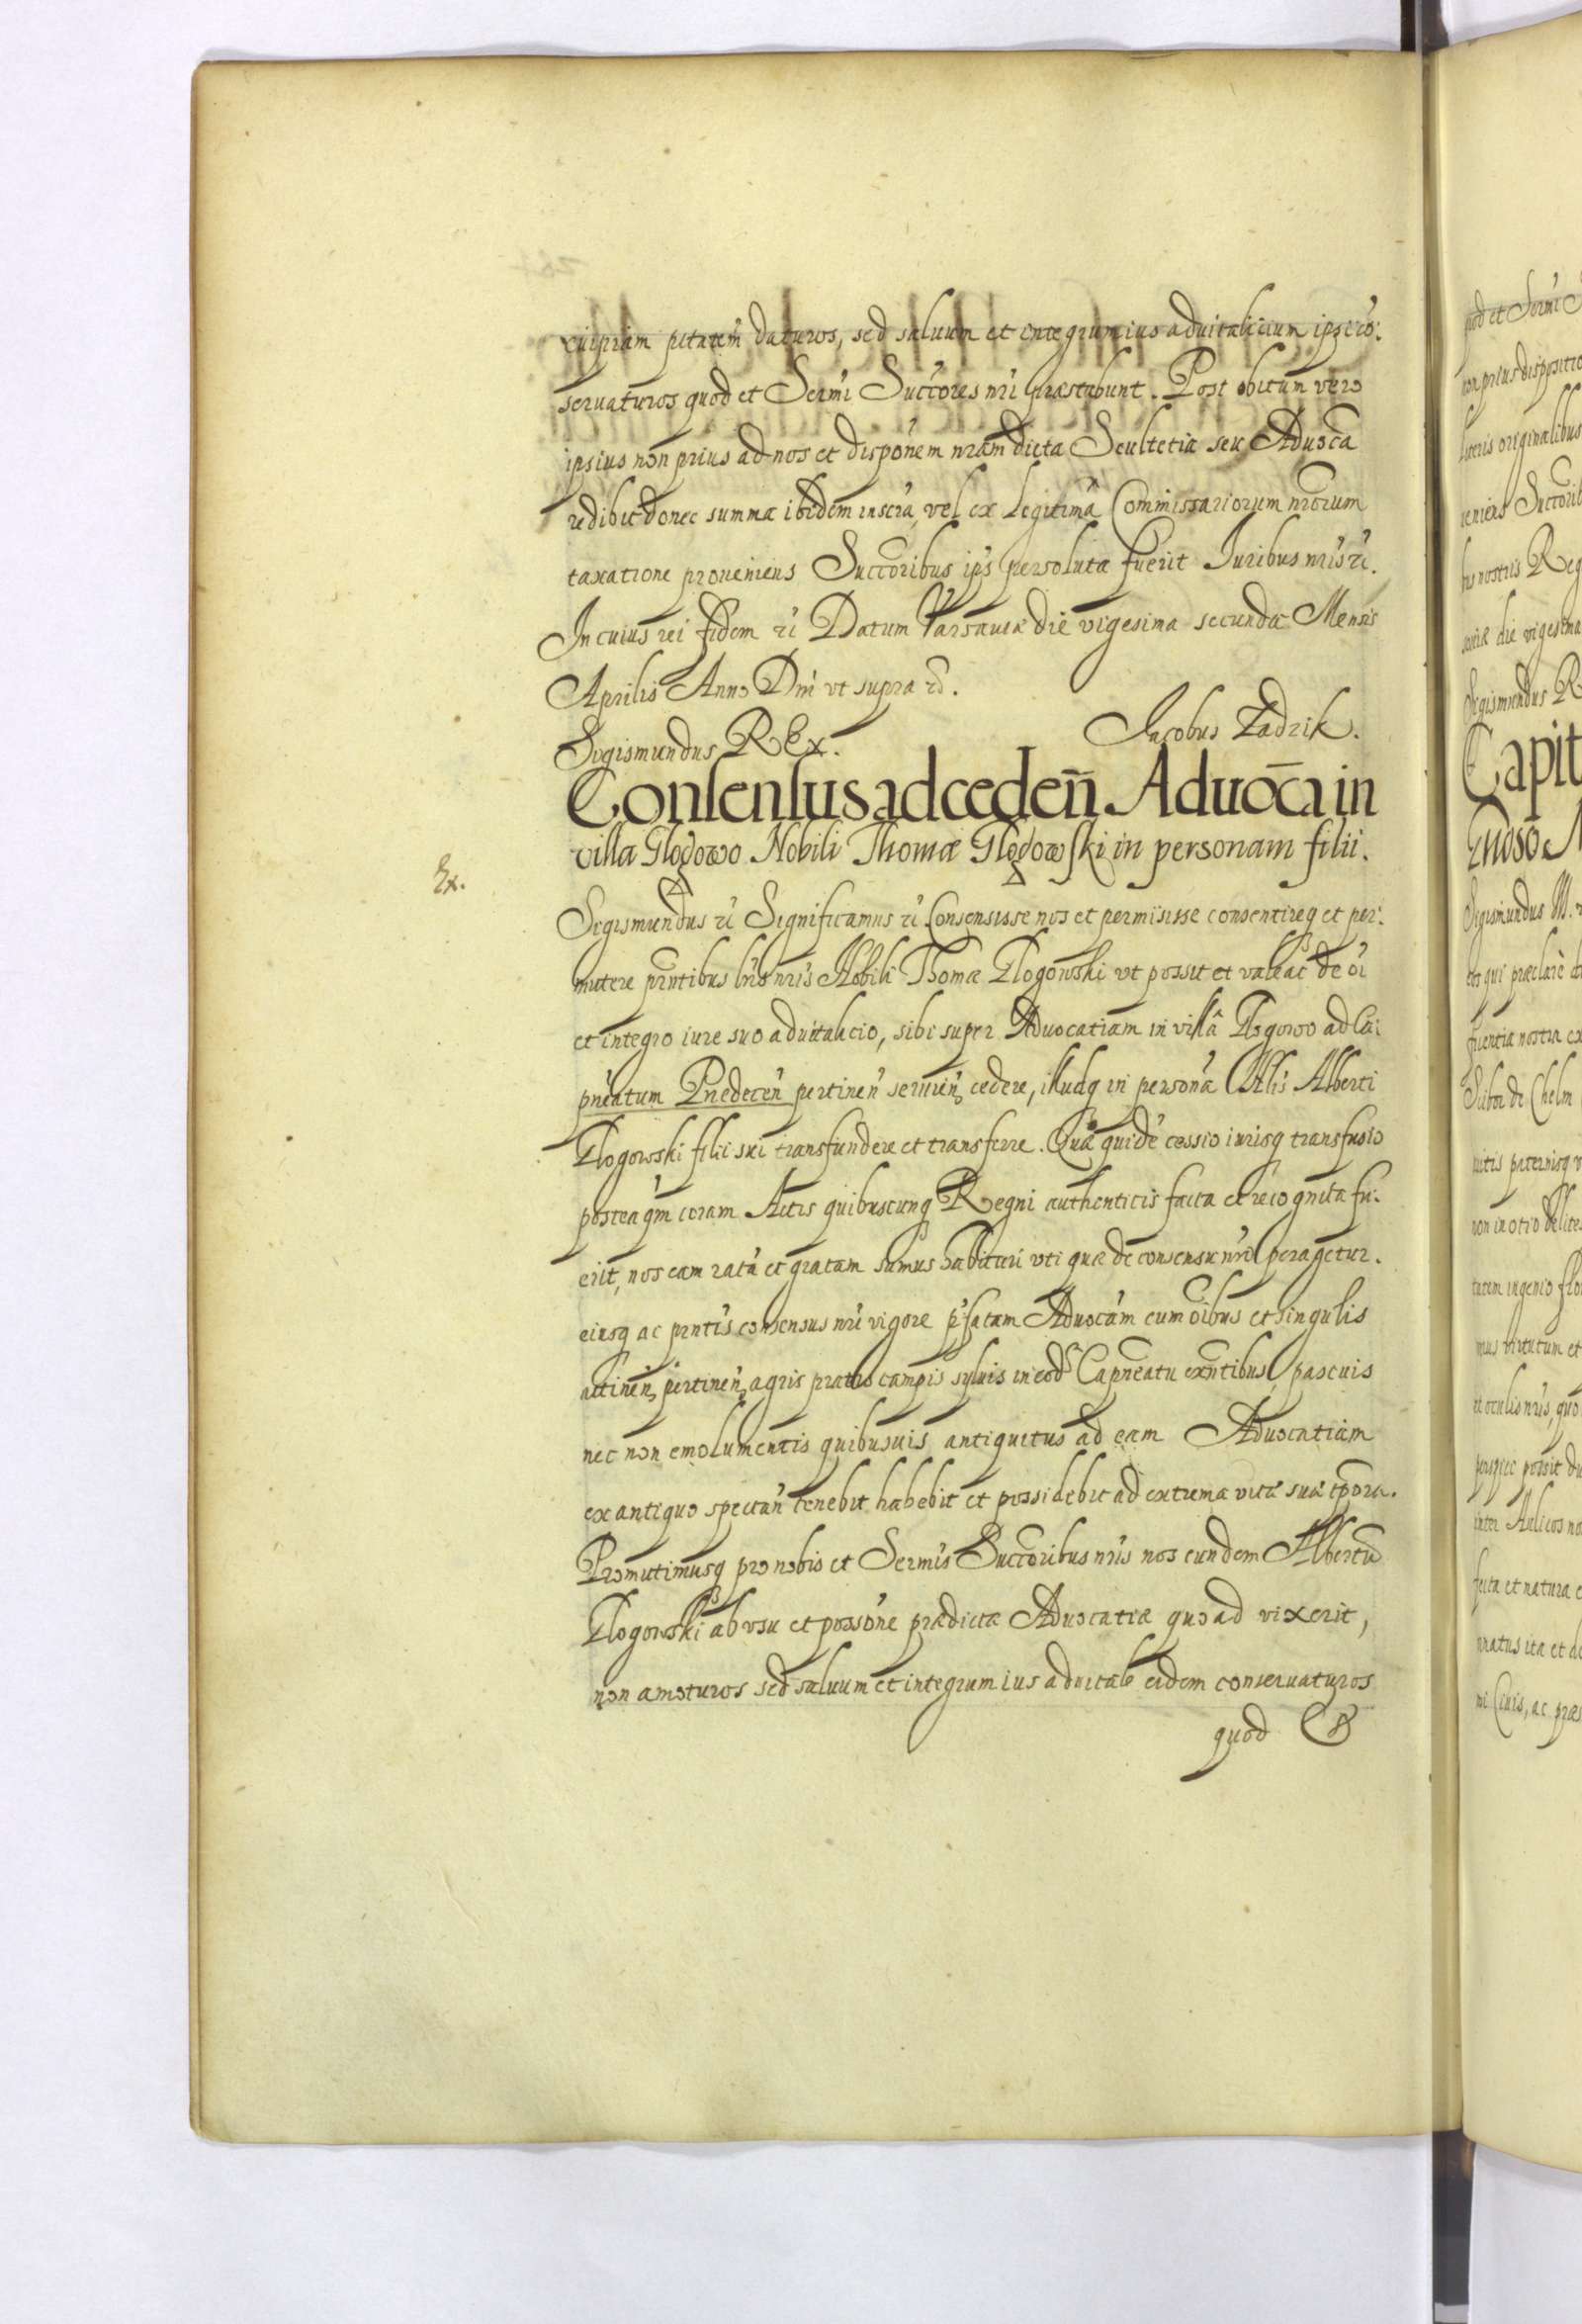 cuipiam ptatem daturos, sed saluum et integrum ius aduitalicium ipsi co:
seruaturos quod et Sermi Succores nri praestabunt. Post obitum vero
ipsius non prius ad nos et disponem nram dicta Scultetia seu Aduoca
redibit donec summa ibidem inscra, vel ex legitima Commissariorum nrorum
taxatione proueniens Succoribus ips persoluta fuerit Iuribus nris ri.
In cuius rei fidem ri Datum Varsauia die vigesima secunda Mensis
Aprilis Anno Dni vt supra rd.
Sigismundus REx. Jacobus Zadzik.
Consensus ad ceden Aduoca in
villa Glogowo Nobili Thomæ Glogowski in personam filii.
Ex.
Sigismundus ri Significamus ri Consensisse nos et permisisse consentireq et per:
mittere pntibus lris nris Nobili Thomæ Glogowski vt possit et valeat de oi
et integro iure suo aduitalicio, sibi super Aduocatiam in villâ Glogowo ad Cai
pneatum Predecen pertinen seruien cedere, illudq in persona Nlis Alberti
Glogowski filii sui transfundere et transferre. Qua quide cessio iurisq transfusio
postea qm coram Actis quibuscunq Regni authenticis facta et recognita fu:
erit, nos eam ratu et gratam sumus habituri vti quæ de consensu nri peragetur.
eiusq ac pntis consensus nri vigore pfatam Aduocam cum oibus et singulis
attinen, pertinen, agris pratis campis syluis in eod Capneatu exntibus, pascuis
nec non emolumentis quibusuis antiquitus ad eam Aduocatiam
ex antiquo spectan tenebit habebit et possidebit ad extrema vitæ suæ tpora.
Promittimusq pro nobis et Sermis Succoribus nris nos eundem Albertu
Glogowski ab vsu et possone prædictæ Aduocatiæ quoad vixerit,
non amoturos sed saluum et integrum ius aduitale eidem conseruaturos
quod &